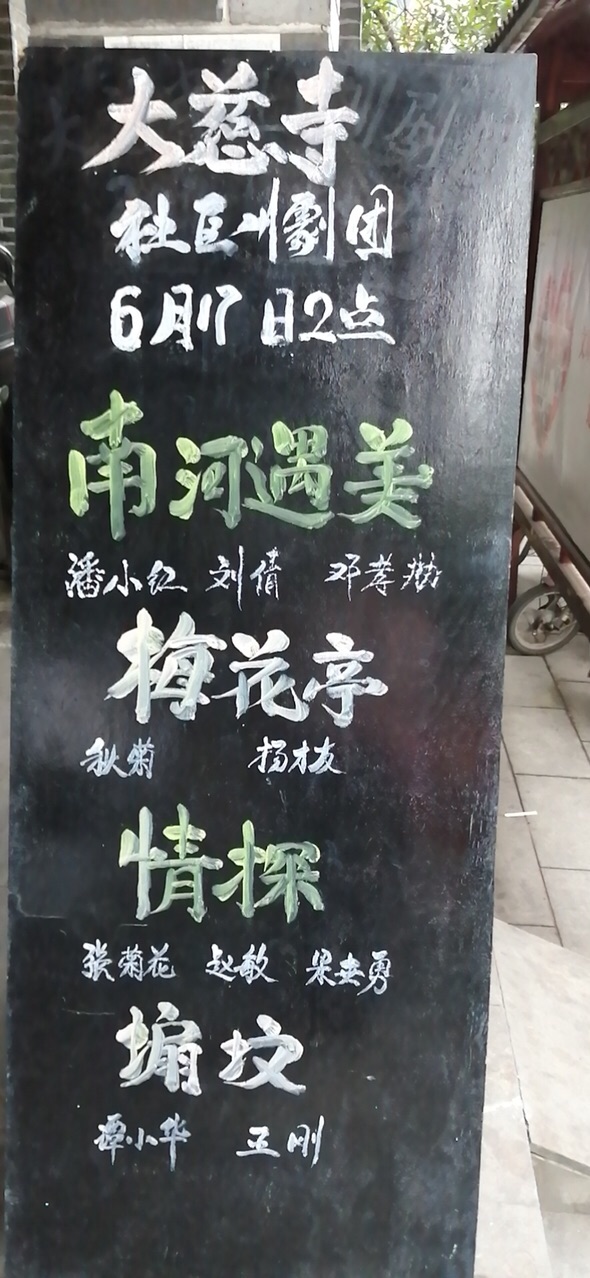 大慈寺
社区川劇团
6月17日2点
南河遇美
潘小红 刘倩 邓孝
梅花亭
秋菊 杨木友
情探
张菊花 赵敏 梁 勇
坟
谭小华 王刚